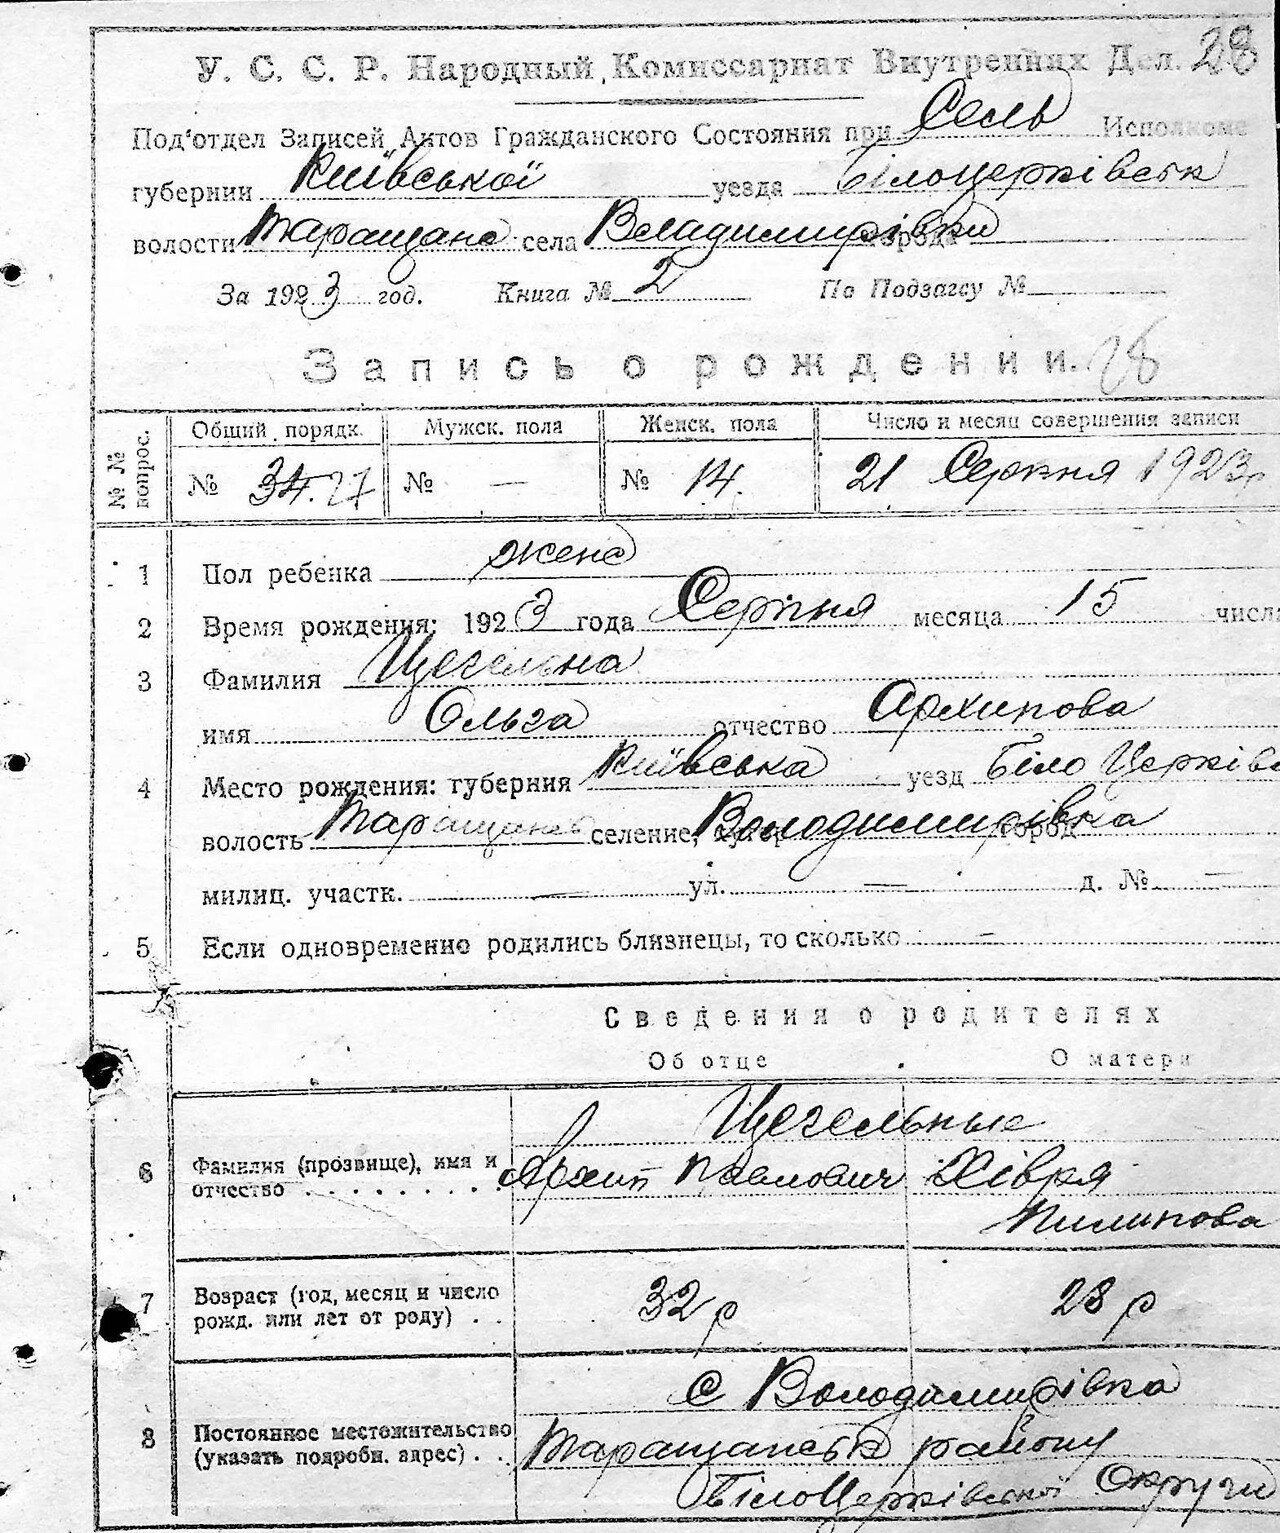 У. С. С. Р. Народный Комиссариат Внутренних Дел. 28
Под'отдел Записей Актов Гражданского Состояния при Сель Исполкоме
губернии Київської уезда Білоцерківськ
волости Таращанс села Володимирівки города
За 1923 год. Книга № 2 По Подзагсу №
Запись о рождении. 28
№ № вопрос. Общий порядк. Мужск. пола Женск. пола Число и месяц совершения записи
№ 34. 27 № — № 14. 21 Серпня 1923р
1 Пол ребенка женс
2 Время рождения: 1923 года Серпня месяца 15 числа
3 Фамилия Щегельна
имя Ольга отчество Архипова
4 Место рождения: губерния Київська уезд Біло Церківс
волость Таращанс селение, хутор Володимирівка город
милиц. участк. — ул. — д. № —
5 Если одновременно родились близнецы, то сколько —
Сведения о родителях
Об отце О матери
Щегельные
6 Фамилия (прозвище), имя и отчество Архип Павлович Хівря
Пилипова
7 Возраст (год, месяц и число рожд. или лет от роду) 32 р 28 р
с Володимирівка
8 Постоянное местожительство (указать подробн. адрес) Таращанськ району
БілоЦерківської Округи